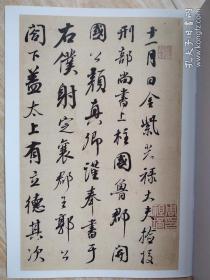 十一月日金紫光禄大夫檢校
刑部尚書上柱國魯郡開
國公顏真卿謹奉書于
右僕射定襄郡王郭公
閤下盖太上有立德其次